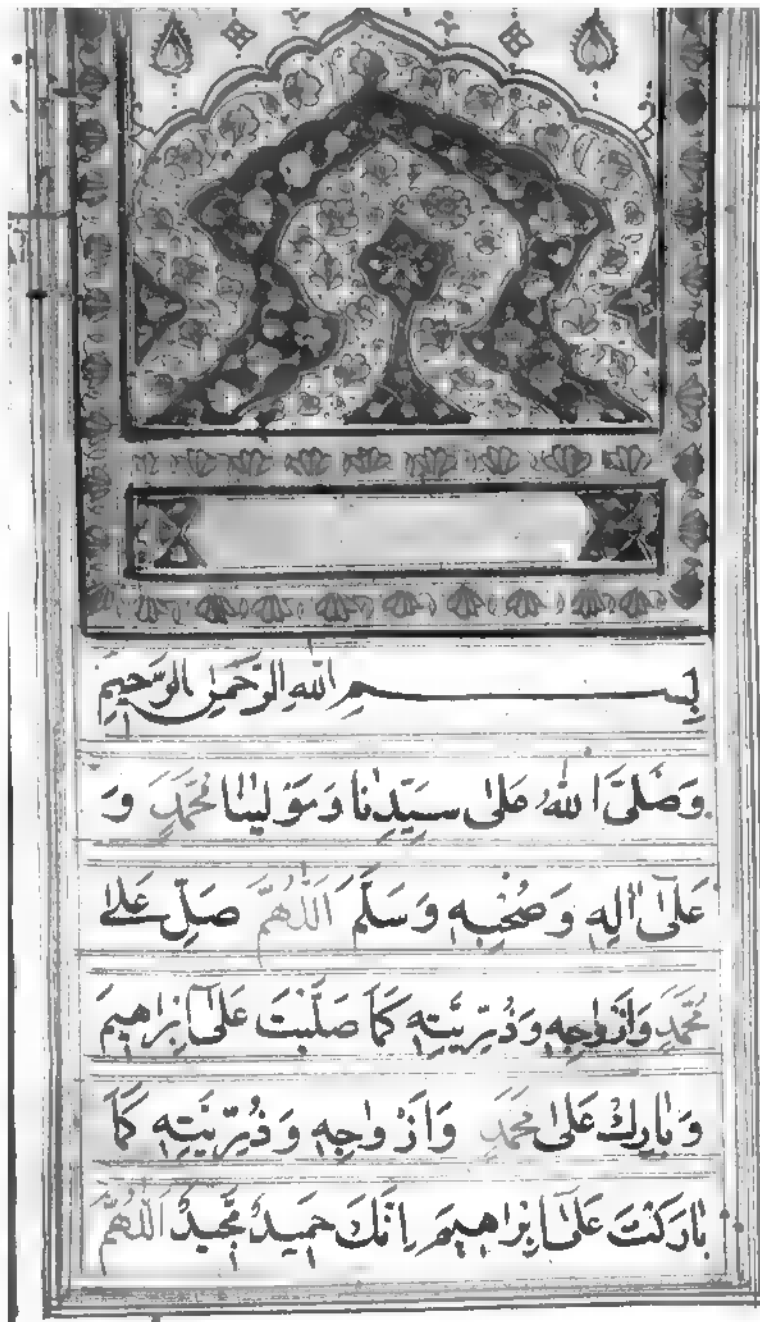 بِسْمِ اللهِ الرَّحْمٰنِ الرَّحِيْمِ
وَصَلَّى اللهُ عَلٰى سَيِّدِنَا وَمَوْلٰينَا مُحَمَّدٍ وَ
عَلٰٓى اٰلِهٖ وَصَحْبِهٖ وَسَلَّمَ اَللّٰهُمَّ صَلِّ عَلٰى
مُحَمَّدٍ وَاَزْوَاجِهٖ وَذُرِّيَّتِهٖ كَمَا صَلَّيْتَ عَلٰٓى اِبْرَاهِيْمَ
وَبَارِكْ عَلٰى مُحَمَّدٍ وَاَزْوَاجِهٖ وَذُرِّيَّتِهٖ كَمَا
بَارَكْتَ عَلٰٓى اِبْرَاهِيْمَ اِنَّكَ حَمِيْدٌ مَّجِيْدٌ اَللّٰهُمَّ